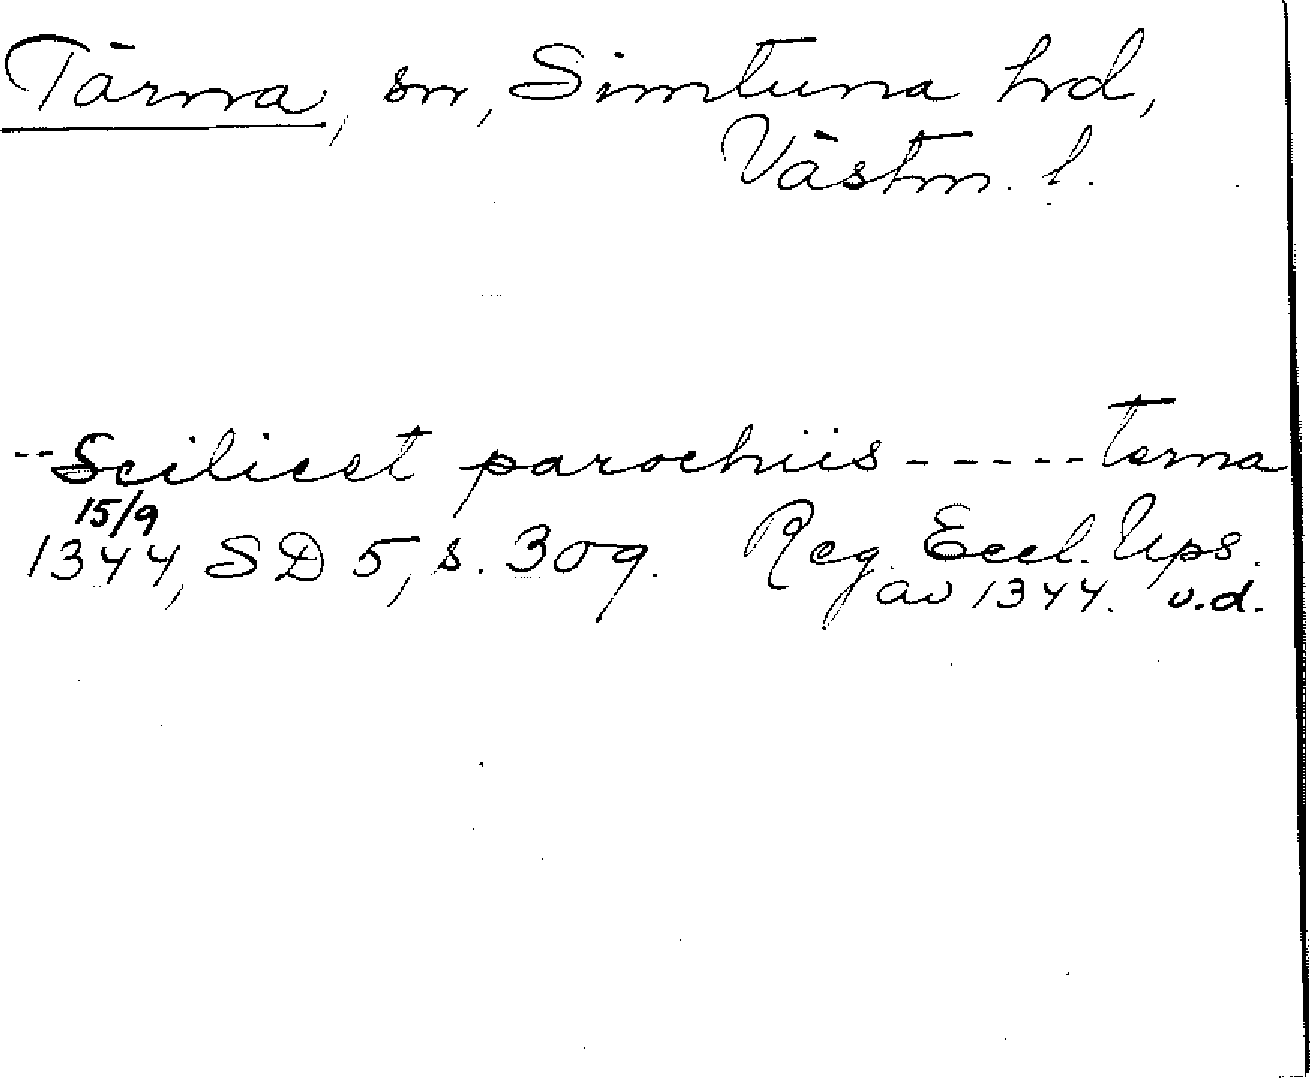 Tärna, sn, Simtuna hd,
Västm. l.
-- Scilicet parochiis ----- Terna
15/9
1344, SD 5, s. 309. Reg. Eccl. Ups.
av 1344. v.d.